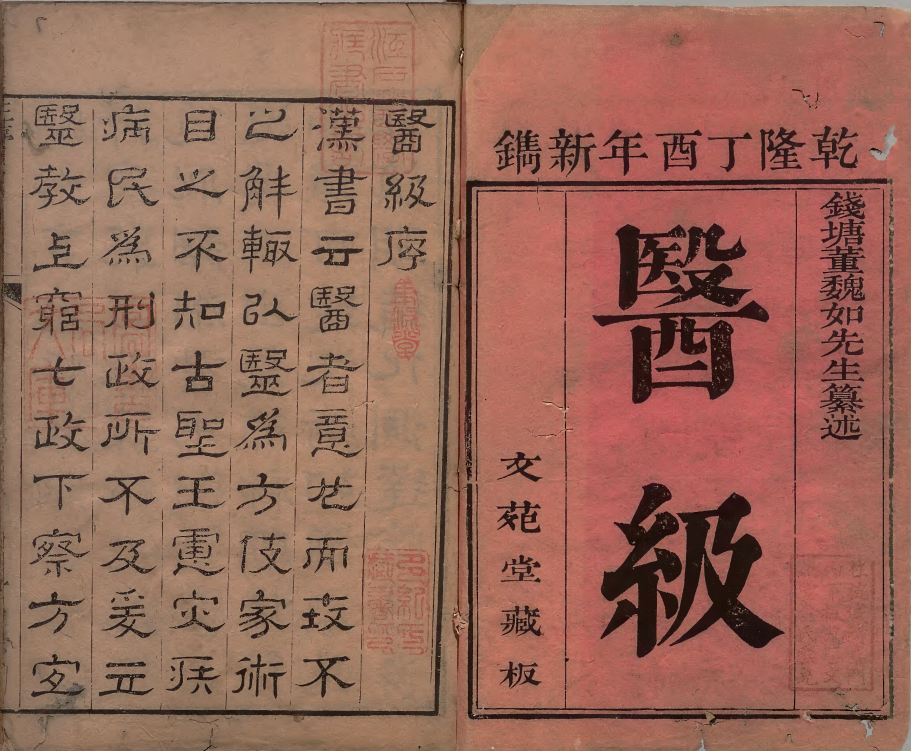 乾隆丁酉年新鐫
錢塘董魏如先生纂述
醫級
文苑堂藏板
醫級序
漢書云醫者意也而不
解輙以毉為方伎家術
目之不知古聖王慮灾疾
病民為刑政所不及爰立
毉教上窮七政下察方宜